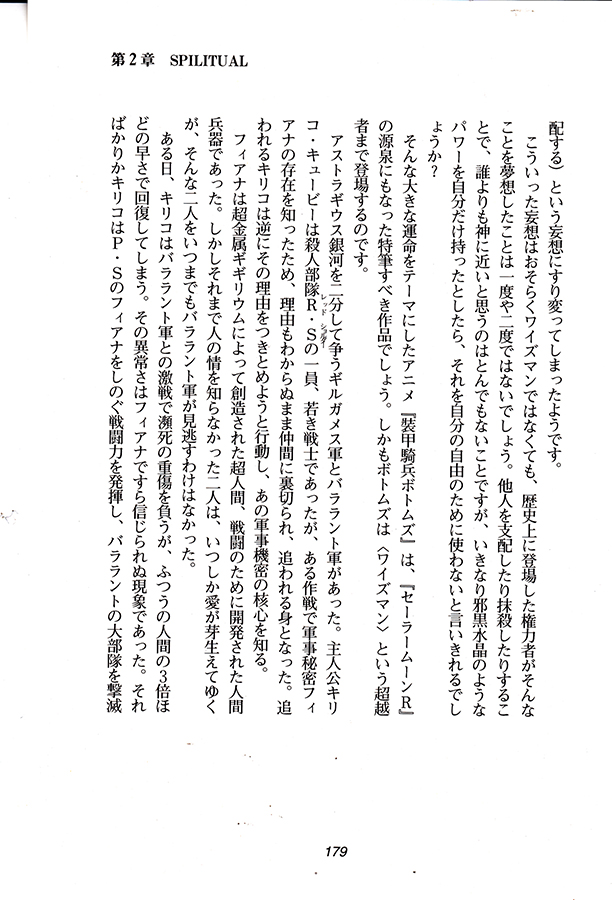 第2章 SPILITUAL
配する）という妄想にすり変ってしまったようです。
こういった妄想はおそらくワイズマンではなくても、歴史上に登場した権力者がそんな
ことを夢想したことは一度や二度ではないでしょう。他人を支配したり抹殺したりするこ
とで、誰よりも神に近いと思うのはとんでもないことですが、いきなり邪黒水晶のような
パワーを自分だけ持ったとしたら、それを自分の自由のために使わないと言いきれるでし
ょうか？
そんな大きな運命をテーマにしたアニメ『装甲騎兵ボトムズ』は、『セーラームーンR』
の源泉にもなった特筆すべき作品でしょう。しかもボトムズは〈ワイズマン〉という超越
者まで登場するのです。
アストラギウス銀河を二分して争うギルガメス軍とバララント軍があった。主人公キリ
コ・キュービーは殺人部隊R・Sの一員、若き戦士であったが、ある作戦で軍事秘密フィ
アナの存在を知ったため、理由もわからぬまま仲間に裏切られ、追われる身となった。追
われるキリコは逆にその理由をつきとめようと行動し、あの軍事機密の核心を知る。
フィアナは超金属ギギリウムによって創造された超人間、戦闘のために開発された人間
兵器であった。しかしそれまで人の情を知らなかった二人は、いつしか愛が芽生えてゆく
が、そんな二人をいつまでもバララント軍が見逃すわけはなかった。
ある日、キリコはバララント軍との激戦で瀕死の重傷を負うが、ふつうの人間の3倍ほ
どの早さで回復してしまう。その異常さはフィアナですら信じられぬ現象であった。それ
ばかりかキリコはP・Sのフィアナをしのぐ戦闘力を発揮し、バララントの大部隊を撃滅
179